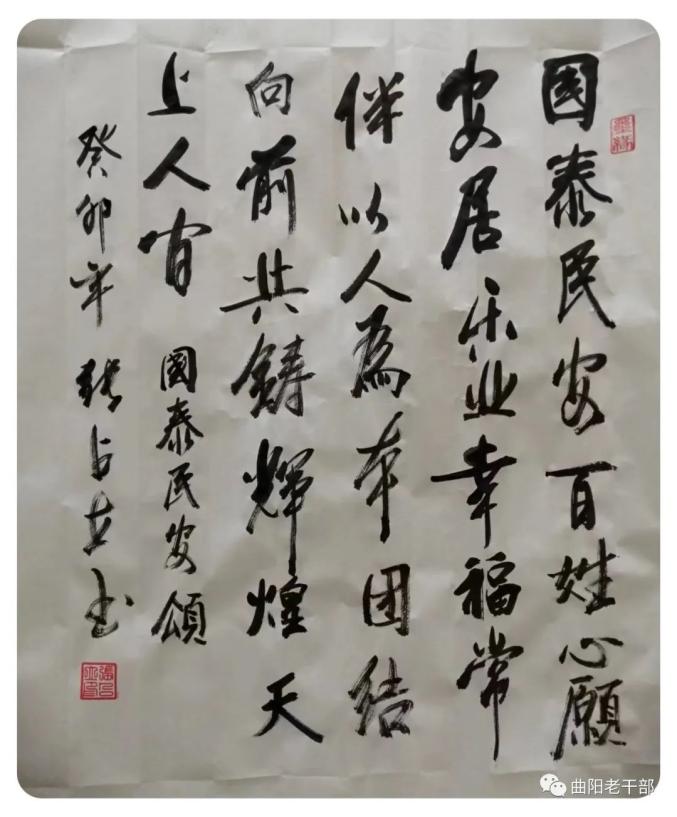 国泰民安百姓心愿
安居乐业幸福常
伴以人為本团结
向前共鑄輝煌天
上人间
國泰民安頌
癸卯年 张占立书
曲阳老干部